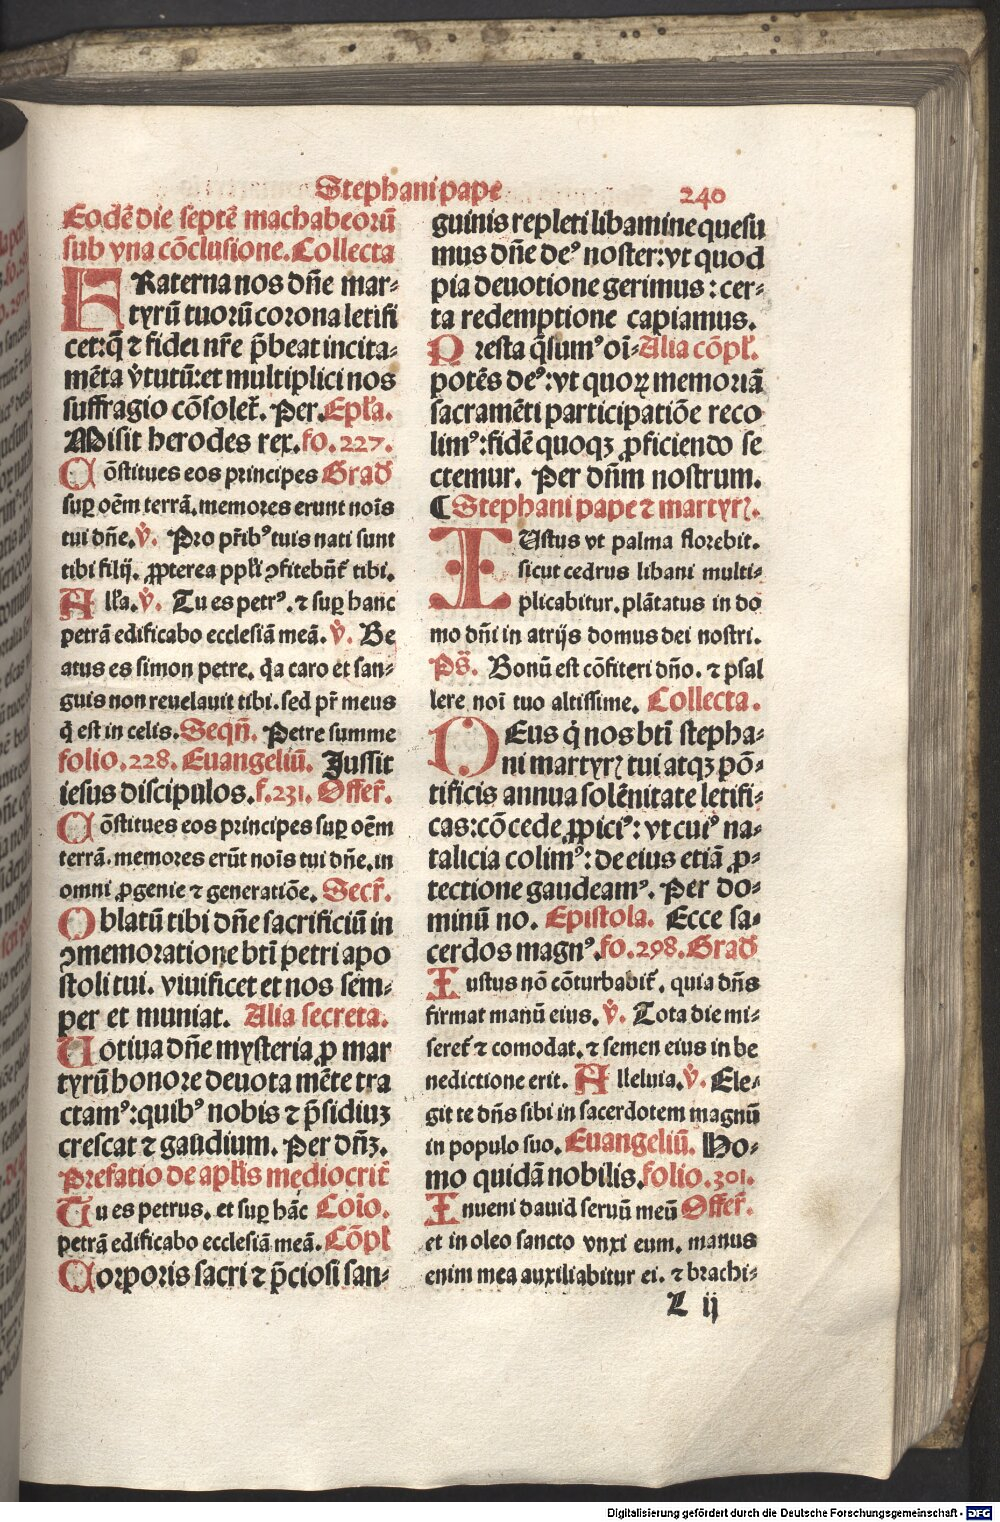 Stephani pape 240
Eodē die septē machabeorū
sub vna cōclusione. Collecta
FRaterna nos dñe mar-
tyrū tuorū corona letifi
cet: q̄ ⁊ fidei nr̄e p̄beat incita-
mēta v̓tutū: et multiplici nos
suffragio cōsolet᷑. Per. Epl̓a.
Misit herodes rex. fo. 227.
Cōstitues eos principes Grad̓
suꝑ oēm terrā. memores erunt noīs
tui dñe. v̓. Pro pr̄ibꝰ tuis nati sunt
tibi filij. ꝓpterea ppl̓i ꝯfitebūt᷑ tibi.
All̓a. v̓. Tu es petrꝰ. ⁊ suꝑ hanc
petrā edificabo ecclesiā meā. v̓. Be
atus es simon petre. q̓a caro et san-
guis non reuelauit tibi. sed pr̄ meus
q̓ est in celis. Seqñ. Petre summe
folio. 228. Euangeliū. Jussit
iesus discipulos. f. 231. Offer̄.
Cōstitues eos principes suꝑ oēm
terrā. memores erūt noīs tui dñe. in
omni ꝓgenie ⁊ generatiōe. Secr̄.
Oblatū tibi dñe sacrificiū in
ꝯmemoratione bt̄i petri apo
stoli tui. viuificet et nos sem-
per et muniat. Alia secreta.
Uotiua dñe mysteria ꝓ mar
tyrū honore deuota mēte tra
ctamꝰ: quibꝰ nobis ⁊ p̄sidiuꝫ
crescat ⁊ gaudium. Per dñꝫ.
Prefatio de apl̓is mediocrit̄
Tu es petrus. et suꝑ hāc Coīo.
petrā edificabo ecclesiā meā. Cōpl̓
Corporis sacri ⁊ p̄ciosi san-
guinis repleti libamine quesu
mus dñe deꝰ noster: vt quod
pia deuotione gerimus: cer-
ta redemptione capiamus.
Presta q̄sumꝰ oī- Alia cōpl̓.
potēs deꝰ: vt quoꝝ memoriā
sacramēti participatiōe reco
limꝰ: fidē quoqꝫ ꝓficiendo se
ctemur. Per dñm nostrum.
¶ Stephani pape ⁊ martyrꝭ.
IUstus vt palma florebit.
sicut cedrus libani multi-
plicabitur. plātatus in do
mo dñi in atrijs domus dei nostri.
Ps̄. Bonū est cōfiteri dño. ⁊ psal
lere noī tuo altissime. Collecta.
DEus q̓ nos bt̄i stepha-
ni martyrꝭ tui atqꝫ pō-
tificis annua solēnitate letifi-
cas: cōcede ꝓpiciꝰ: vt cuiꝰ na-
talicia colimꝰ: de eius etiā ꝓ-
tectione gaudeamꝰ. Per do-
minū no. Epistola. Ecce sa-
cerdos magnꝰ. fo. 298. Grad̓
Iustus nō cōturbabit᷑. quia dñs
firmat manū eius. v̓. Tota die mi-
seret᷑ ⁊ comodat. ⁊ semen eius in be
nedictione erit. Alleluia. v̓. Ele-
git te dñs sibi in sacerdotem magnū
in populo suo. Euangeliū. Ho-
mo quidā nobilis. folio. 301.
Inueni dauid seruū meū Offer̄.
et in oleo sancto vnxi eum. manus
enim mea auxiliabitur ei. ⁊ brachi-
L ij
Digitalisierung gefördert durch die Deutsche Forschungsgemeinschaft - DFG